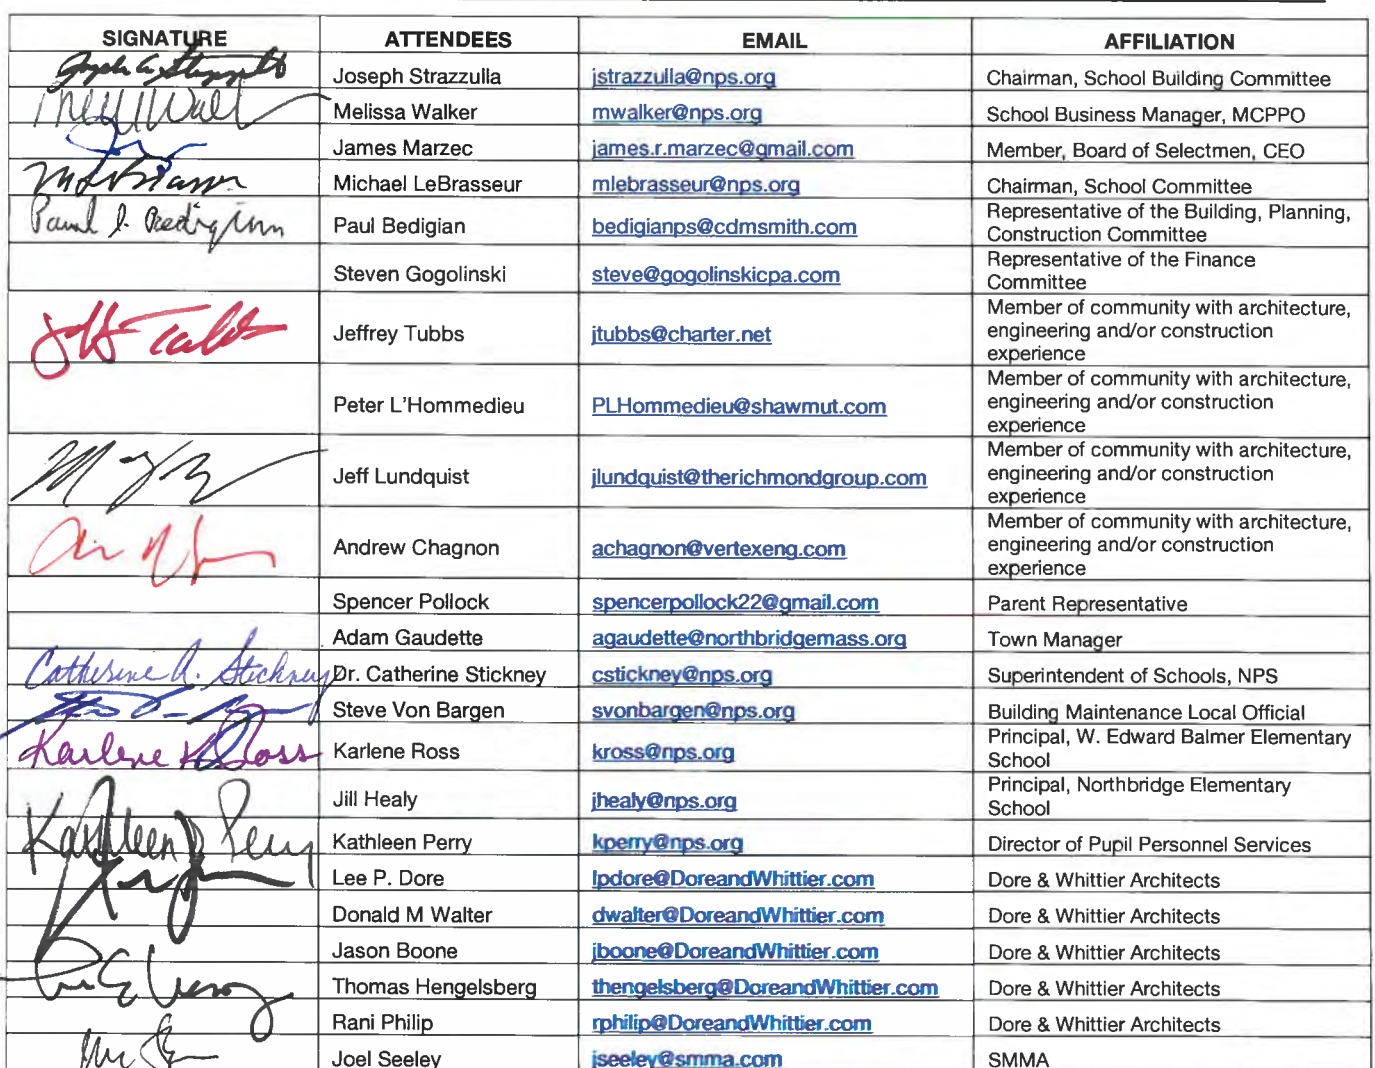 SIGNATURE ATTENDEES EMAIL AFFILIATION
Joseph Strazzulla jstrazzulla@nps.org Chairman, School Building Committee
Melissa Walker mwalker@nps.org School Business Manager, MCPPO
James Marzec james.r.marzec@gmail.com Member, Board of Selectmen, CEO
Michael LeBrasseur mlebrasseur@nps.org Chairman, School Committee
Paul Bedigian bedigianps@cdmsmith.com Representative of the Building, Planning,
Construction Committee
Steven Gogolinski steve@gogolinskicpa.com Representative of the Finance
Committee
Member of community with architecture,
Jeffrey Tubbs jtubbs@charter.net engineering and/or construction
experience
Member of community with architecture,
Peter L'Hommedieu PLHommedieu@shawmut.com engineering and/or construction
experience
Member of community with architecture,
Jeff Lundquist jlundquist@therichmondgroup.com engineering and/or construction
experience
Member of community with architecture,
Andrew Chagnon achagnon@vertexeng.com engineering and/or construction
experience
Spencer Pollock spencerpollock22@gmail.com Parent Representative
Adam Gaudette agaudette@northbridgemass.org Town Manager
Catherine A. Stickney Dr. Catherine Stickney cstickney@nps.org Superintendent of Schools, NPS
Steve Von Bargen svonbargen@nps.org Building Maintenance Local Official
Karlene K Ross Karlene Ross kross@nps.org Principal, W. Edward Balmer Elementary
School
Jill Healy jhealy@nps.org Principal, Northbridge Elementary
School
Kathleen Perry Kathleen Perry kperry@nps.org Director of Pupil Personnel Services
Lee P. Dore lpdore@DoreandWhittier.com Dore & Whittier Architects
Donald M Walter dwalter@DoreandWhittier.com Dore & Whittier Architects
Jason Boone jboone@DoreandWhittier.com Dore & Whittier Architects
Thomas Hengelsberg thengelsberg@DoreandWhittier.com Dore & Whittier Architects
Rani Philip rphilip@DoreandWhittier.com Dore & Whittier Architects
Joel Seeley jseeley@smma.com SMMA